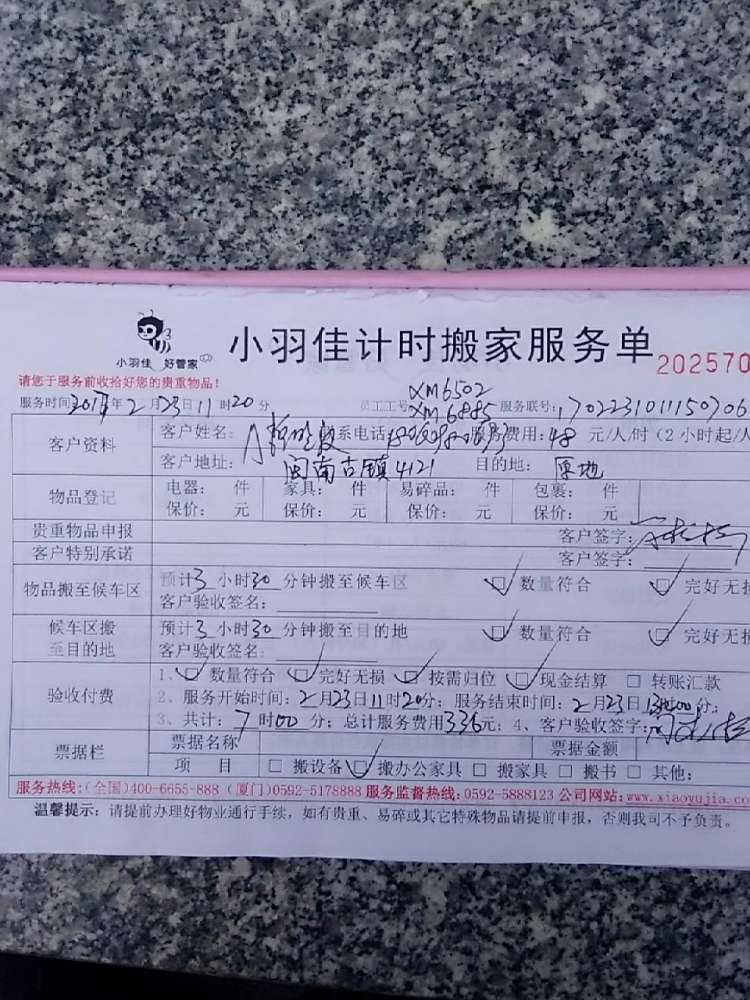 小羽佳 好管家
小羽佳计时搬家服务单
202570
请您于服务前收拾好您的贵重物品！
XM6502
服务时间2017年2月23日11时20分 员工工号XM6885 服务联号:1702231011150706
客户资料
客户姓名: 联系电话 服务费用:48元/人/时(2小时起/人
客户地址: 闽南古镇4121 目的地: 原地
物品登记
电器: 件 家具: 件 易碎品: 件 包裹: 件
保价: 元 保价: 元 保价: 元 保价: 元
贵重物品申报 客户签字:
客户特别承诺 客户签字:
物品搬至候车区
预计3小时30分钟搬至候车区 ☑数量符合 ☑完好无损
客户验收签名:
候车区搬至目的地
预计3小时30分钟搬至目的地 ☑数量符合 ☑完好无损
客户验收签名:
验收付费
1、☑数量符合 ☑完好无损 ☑按需归位 ☑现金结算 □ 转账汇款
2、服务开始时间:2月23日11时20分; 服务结束时间: 2月23日 分;
3、共计:7时00分; 总计服务费用336元; 4、客户验收签字:
票据栏
票据名称 票据金额
项 目 □ 搬设备 ☑搬办公家具 □ 搬家具 □ 搬书 □ 其他:
服务热线:(全国)400-6655-888 (厦门)0592-5178888 服务监督热线:0592-5888123 公司网站:www.xiaoyujia.co
温馨提示: 请提前办理好物业通行手续, 如有贵重、易碎或其它特殊物品请提前申报, 否则我司不予负责。